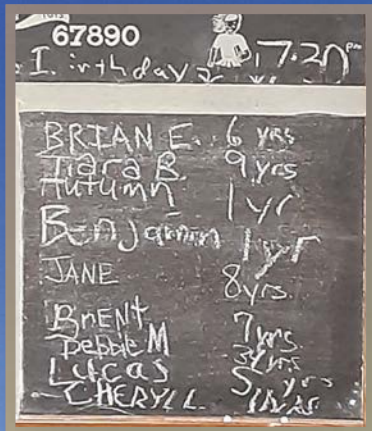 67890
7:30 pm
BRIAN E. 6 yrs
Tiara B. 9 yrs
Autumn 1 yr
Benjamin 1 yr
JANE 8 yrs.
BRENt 7 yrs.
Debbie M
Lucas 5 yrs
CHERYL L.